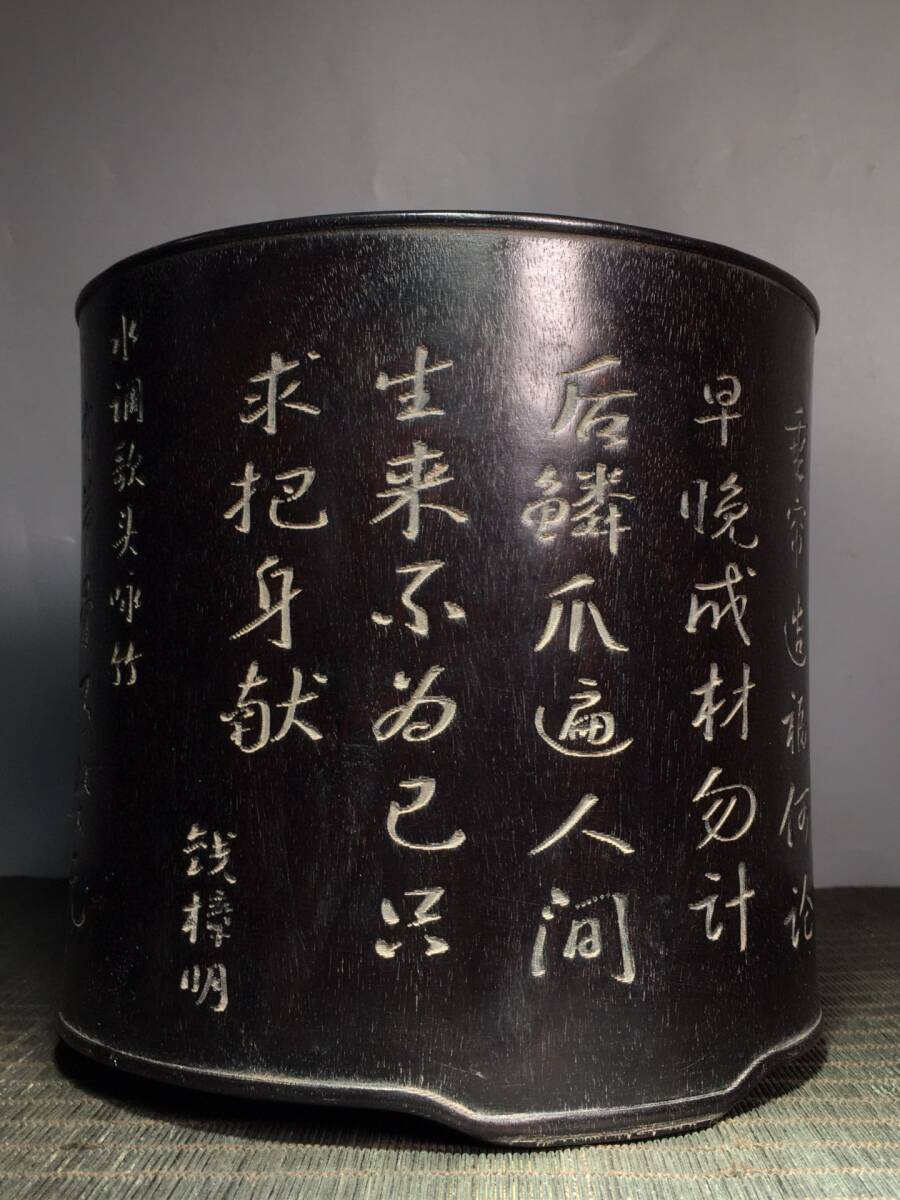 造福何论
早晚成材勿计
后鳞爪遍人间
生来不为己只
求把身献
钱樟明
水调歌头·咏竹